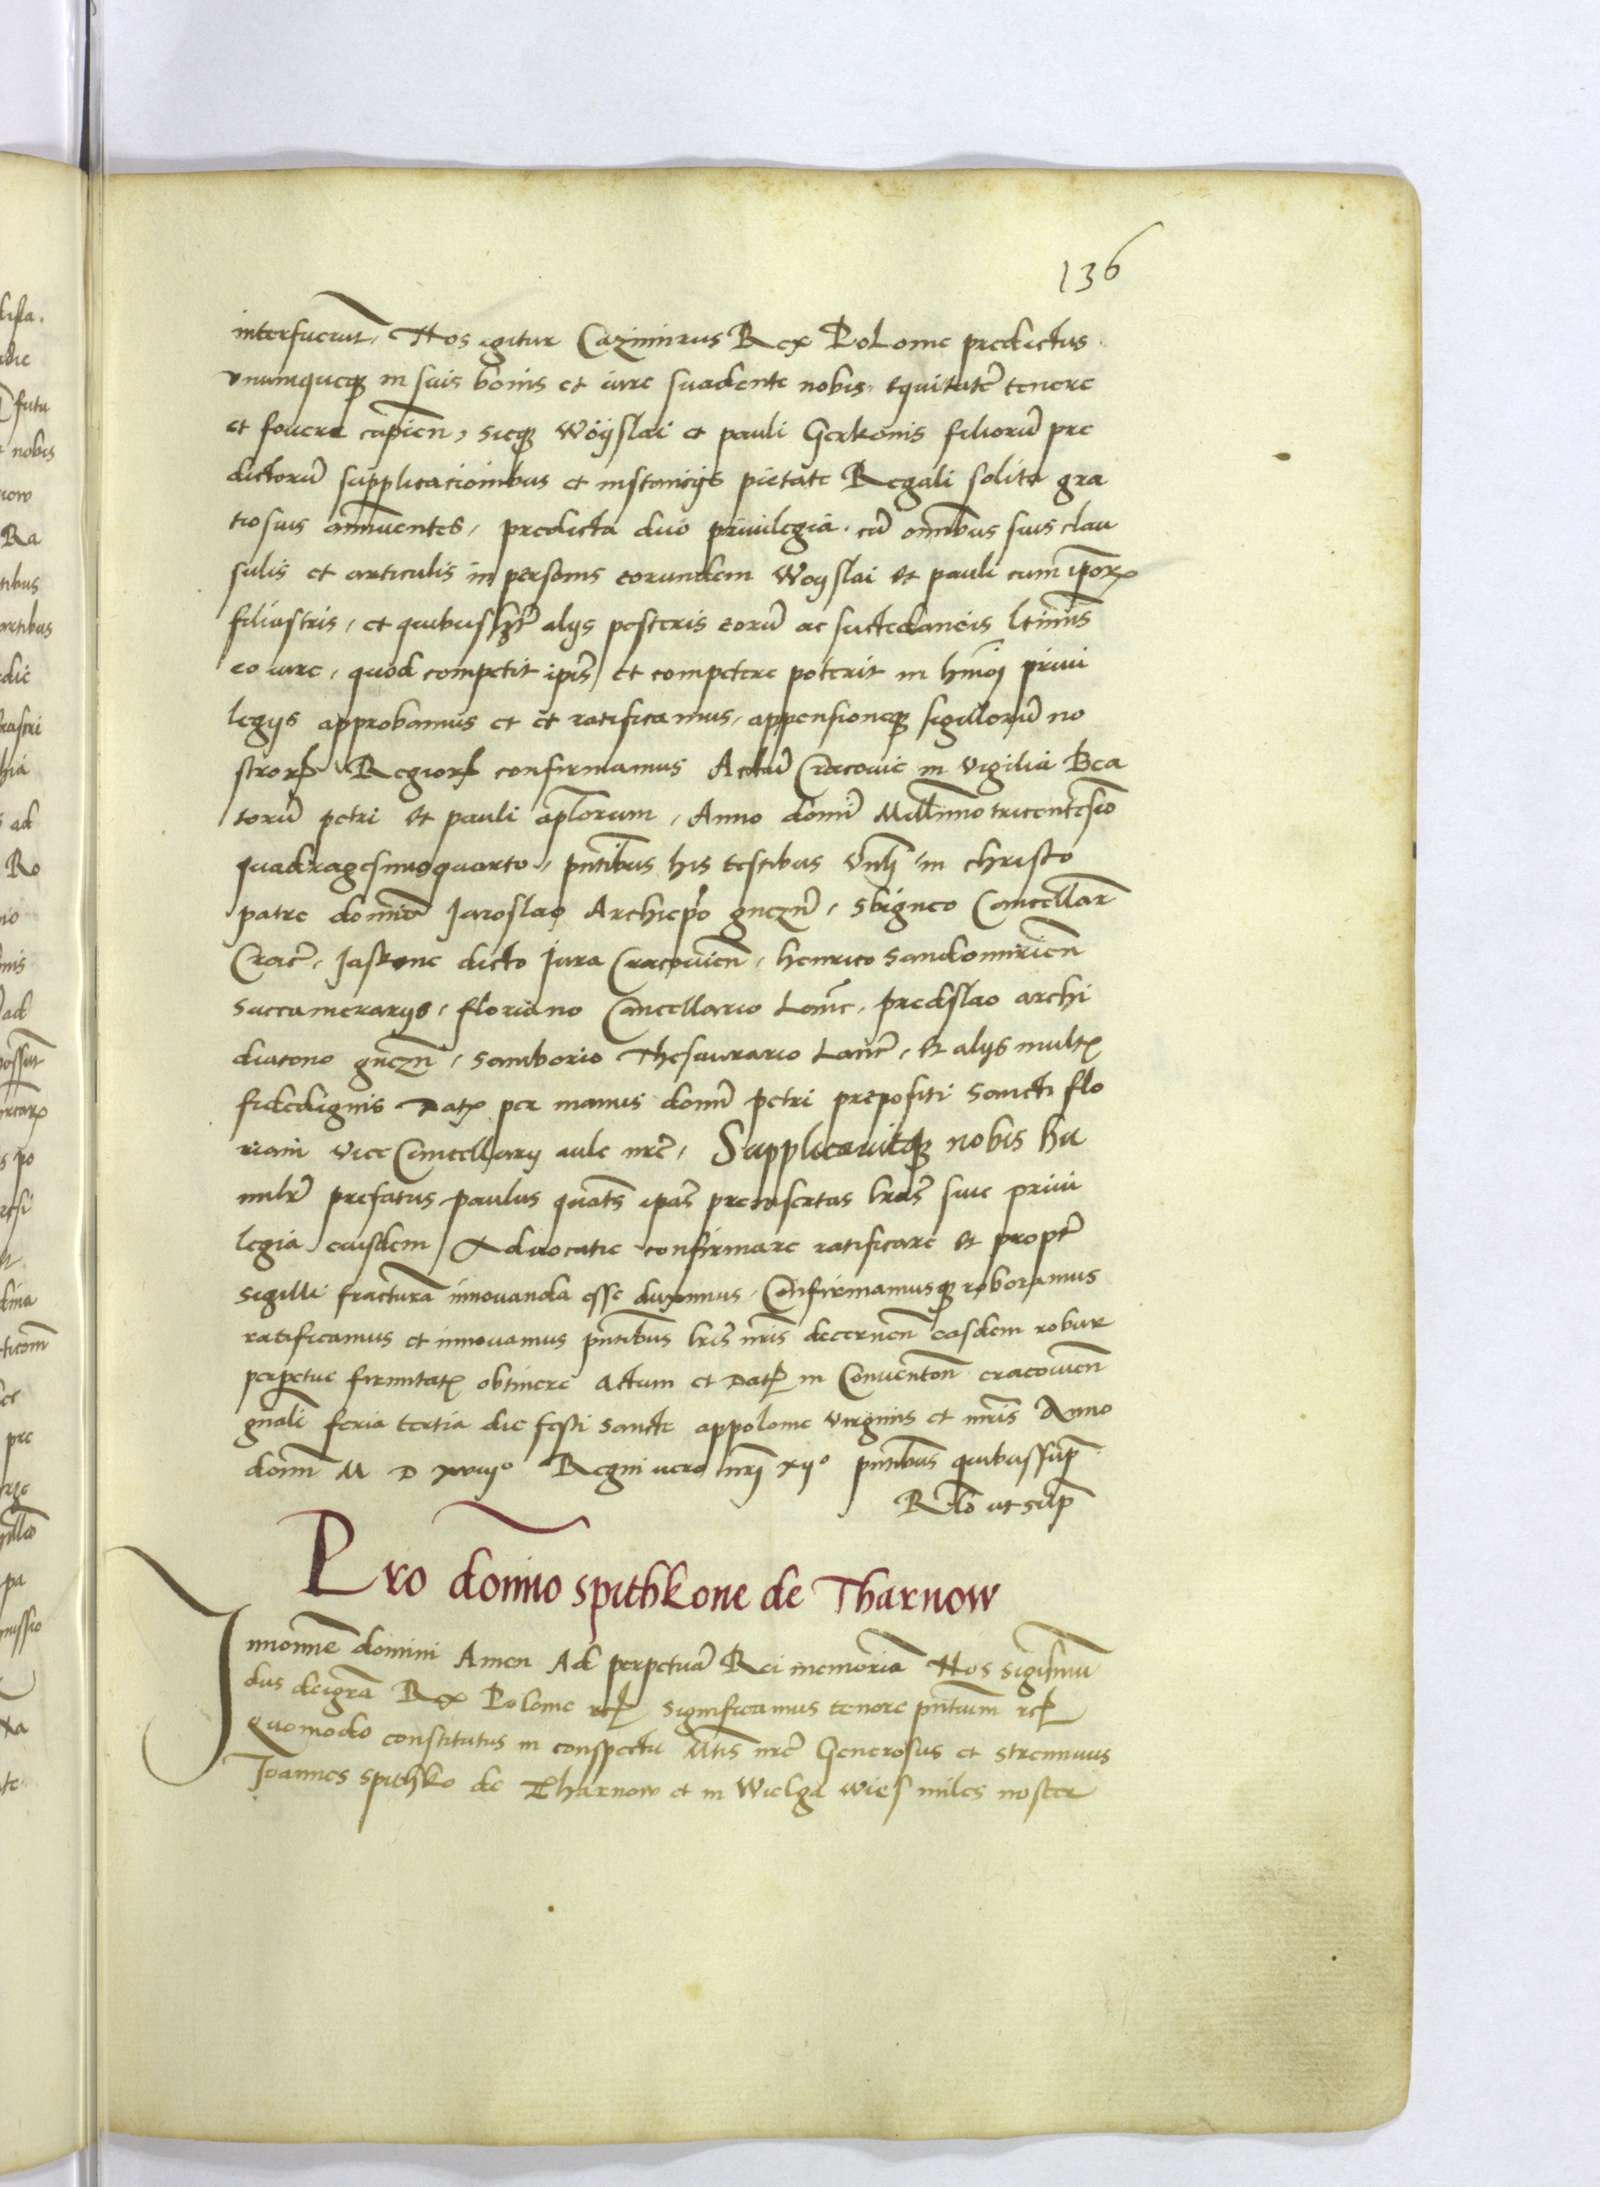 136
interfuerūt, Nos igitur Cazimirus Rex Polonie predictus
vnumquēqꝫ in suis bonis et iure suadente nobis equitatē tenere
et fouere cupien̄, sicqꝫ Woyslai et pauli Gerkonis filiorū pre
dictorū supplicacionibus et instancijs pietate Regali solita gra
tiosius annuentes, predicta duo priuilegia cū omībus suis clau
sulis et articulis in personis eorundem Woyslai et pauli cum ip̄orꝝ
filiastris, et quibuslꝫ alijs posteris eorū ac succedaneis ltimis
eo iure, quod competit ip̄is et competere poterit in hmōi priui
legijs approbamus et et ratificamus, appensioneqꝫ sigillorū no
strorꝝ Regiorꝝ confirmamus Actū Cracouie in vigilia Bea
torū petri et pauli ap̄lorum, Anno domī Millimo tricentesīo
quadragesimoquarto, pn̄tibus his testibus vn̄li in christo
patre domīo Iaroslao Archiep̄o gnezn̄, sbigneo Cancellar̄
Crac̄, Jaskone dicto Jura Cracouien̄, henrico Sandomirien̄
succamerarijs, floriano Cancellario Lanc̄, predslao archi
diacono gnezn̄, samborio Thesaurario Lanc̄, et alijs multꝭ
fidedignis Datꝭ per manus domī petri prepositi sancti flo
riani vice Cancellarij aule nrē, Supplicauitqꝫ nobis hu
milr̄ prefatus paulus quatn̄s ip̄as preinsertas lrās siue priui
legia eiusdem Aduocatie confirmare ratificare et propt̄
sigilli fracturā innouanda esse duximus, Confirmamusqꝫ roboramus
ratificamus et innouamus pn̄tibus lrīs nrīs decernen̄ easdem robur
perpetue firmitatꝭ obtinere Actum et Datꝭ in Conuention̄ cracouien̄
gn̄ali feria tertia die festi sancte appolonie virginis et mrīs Anno
domī M D xviijº Regni vero nrī xijº pn̄tibus quibus sup̄
Rlō ut sup̄
Pro domīo spithkone de Tharnow
In nomīe domini Amen Ad perpetuā Rei memoriā Nos sigismū
dus dei grā Rex Polonie rcꝭ significamus tenore pn̄tium rcꝭ
Quomodo constitutus in conspectu Mtis nrē Generosus et strennuus
Joannes spithko de Tharnow et in Wielga wies miles noster